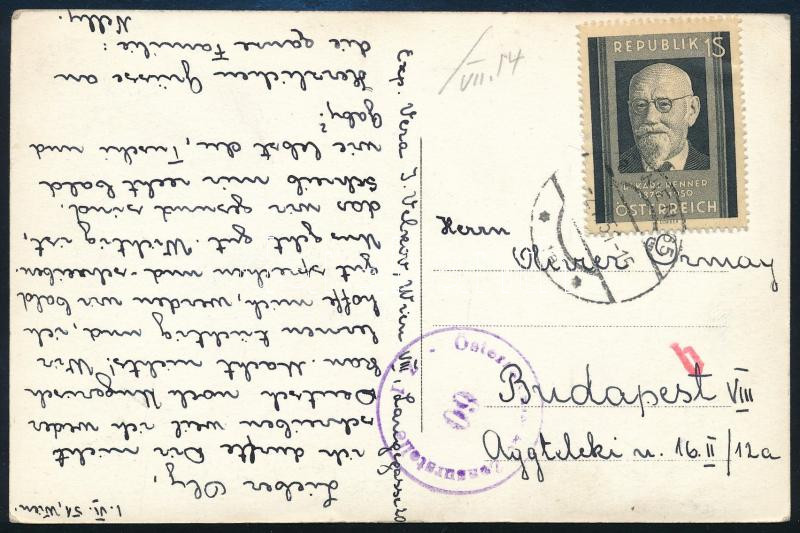 1. VI. 51, Wien.
Lieber Oly,
ich durfte Dir nicht
schreiben weil ich weder
Deutsch noch Ungarisch
kan. Macht nichts. Wir
lernen tüchtig und, ich
hoffe mich, werden wir bald
gut sprechen und-schreiben
Uns geht gut. Wichtig ist,
das wir gesund sind.
Schreib mir recht bald
wie lebst du, Tuschi und
Gaby?
Herzlichen Grüsse an
die ganse Familie:
Nelly.
Exp. Vera J. Velkov, Wien VIII,
VII. 54
REPUBLIK 1S
DR KARL RENNER
1870-1950
ÖSTERREICH
Herrn
Olivier Ormay
Budapest VIII
Aggteleki u. 16. II/12a
Zensurstelle
60
b